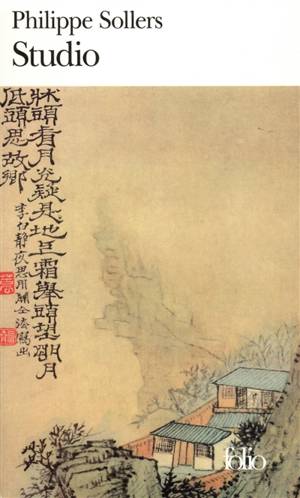 Philippe Sollers
Studio
牀頭看月光疑是地上霜舉頭望明月
低頭思故鄉
李白靜夜思用法寫出
folio